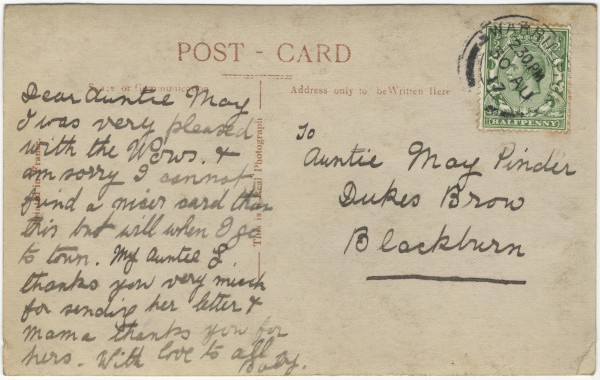 POST - CARD
Address only to be Written Here
Dear Auntie May
I was very pleased
with the Views. &
am sorry I cannot
find a nicer card than
this but will when I go
to town. My Auntie L.
thanks you very much
for sending her letter &
Mama thanks you for
hers. With love to all
Baby.
To
Auntie May Pinder
Dukes Brow
Blackburn
2.30 PM
HALFPENNY